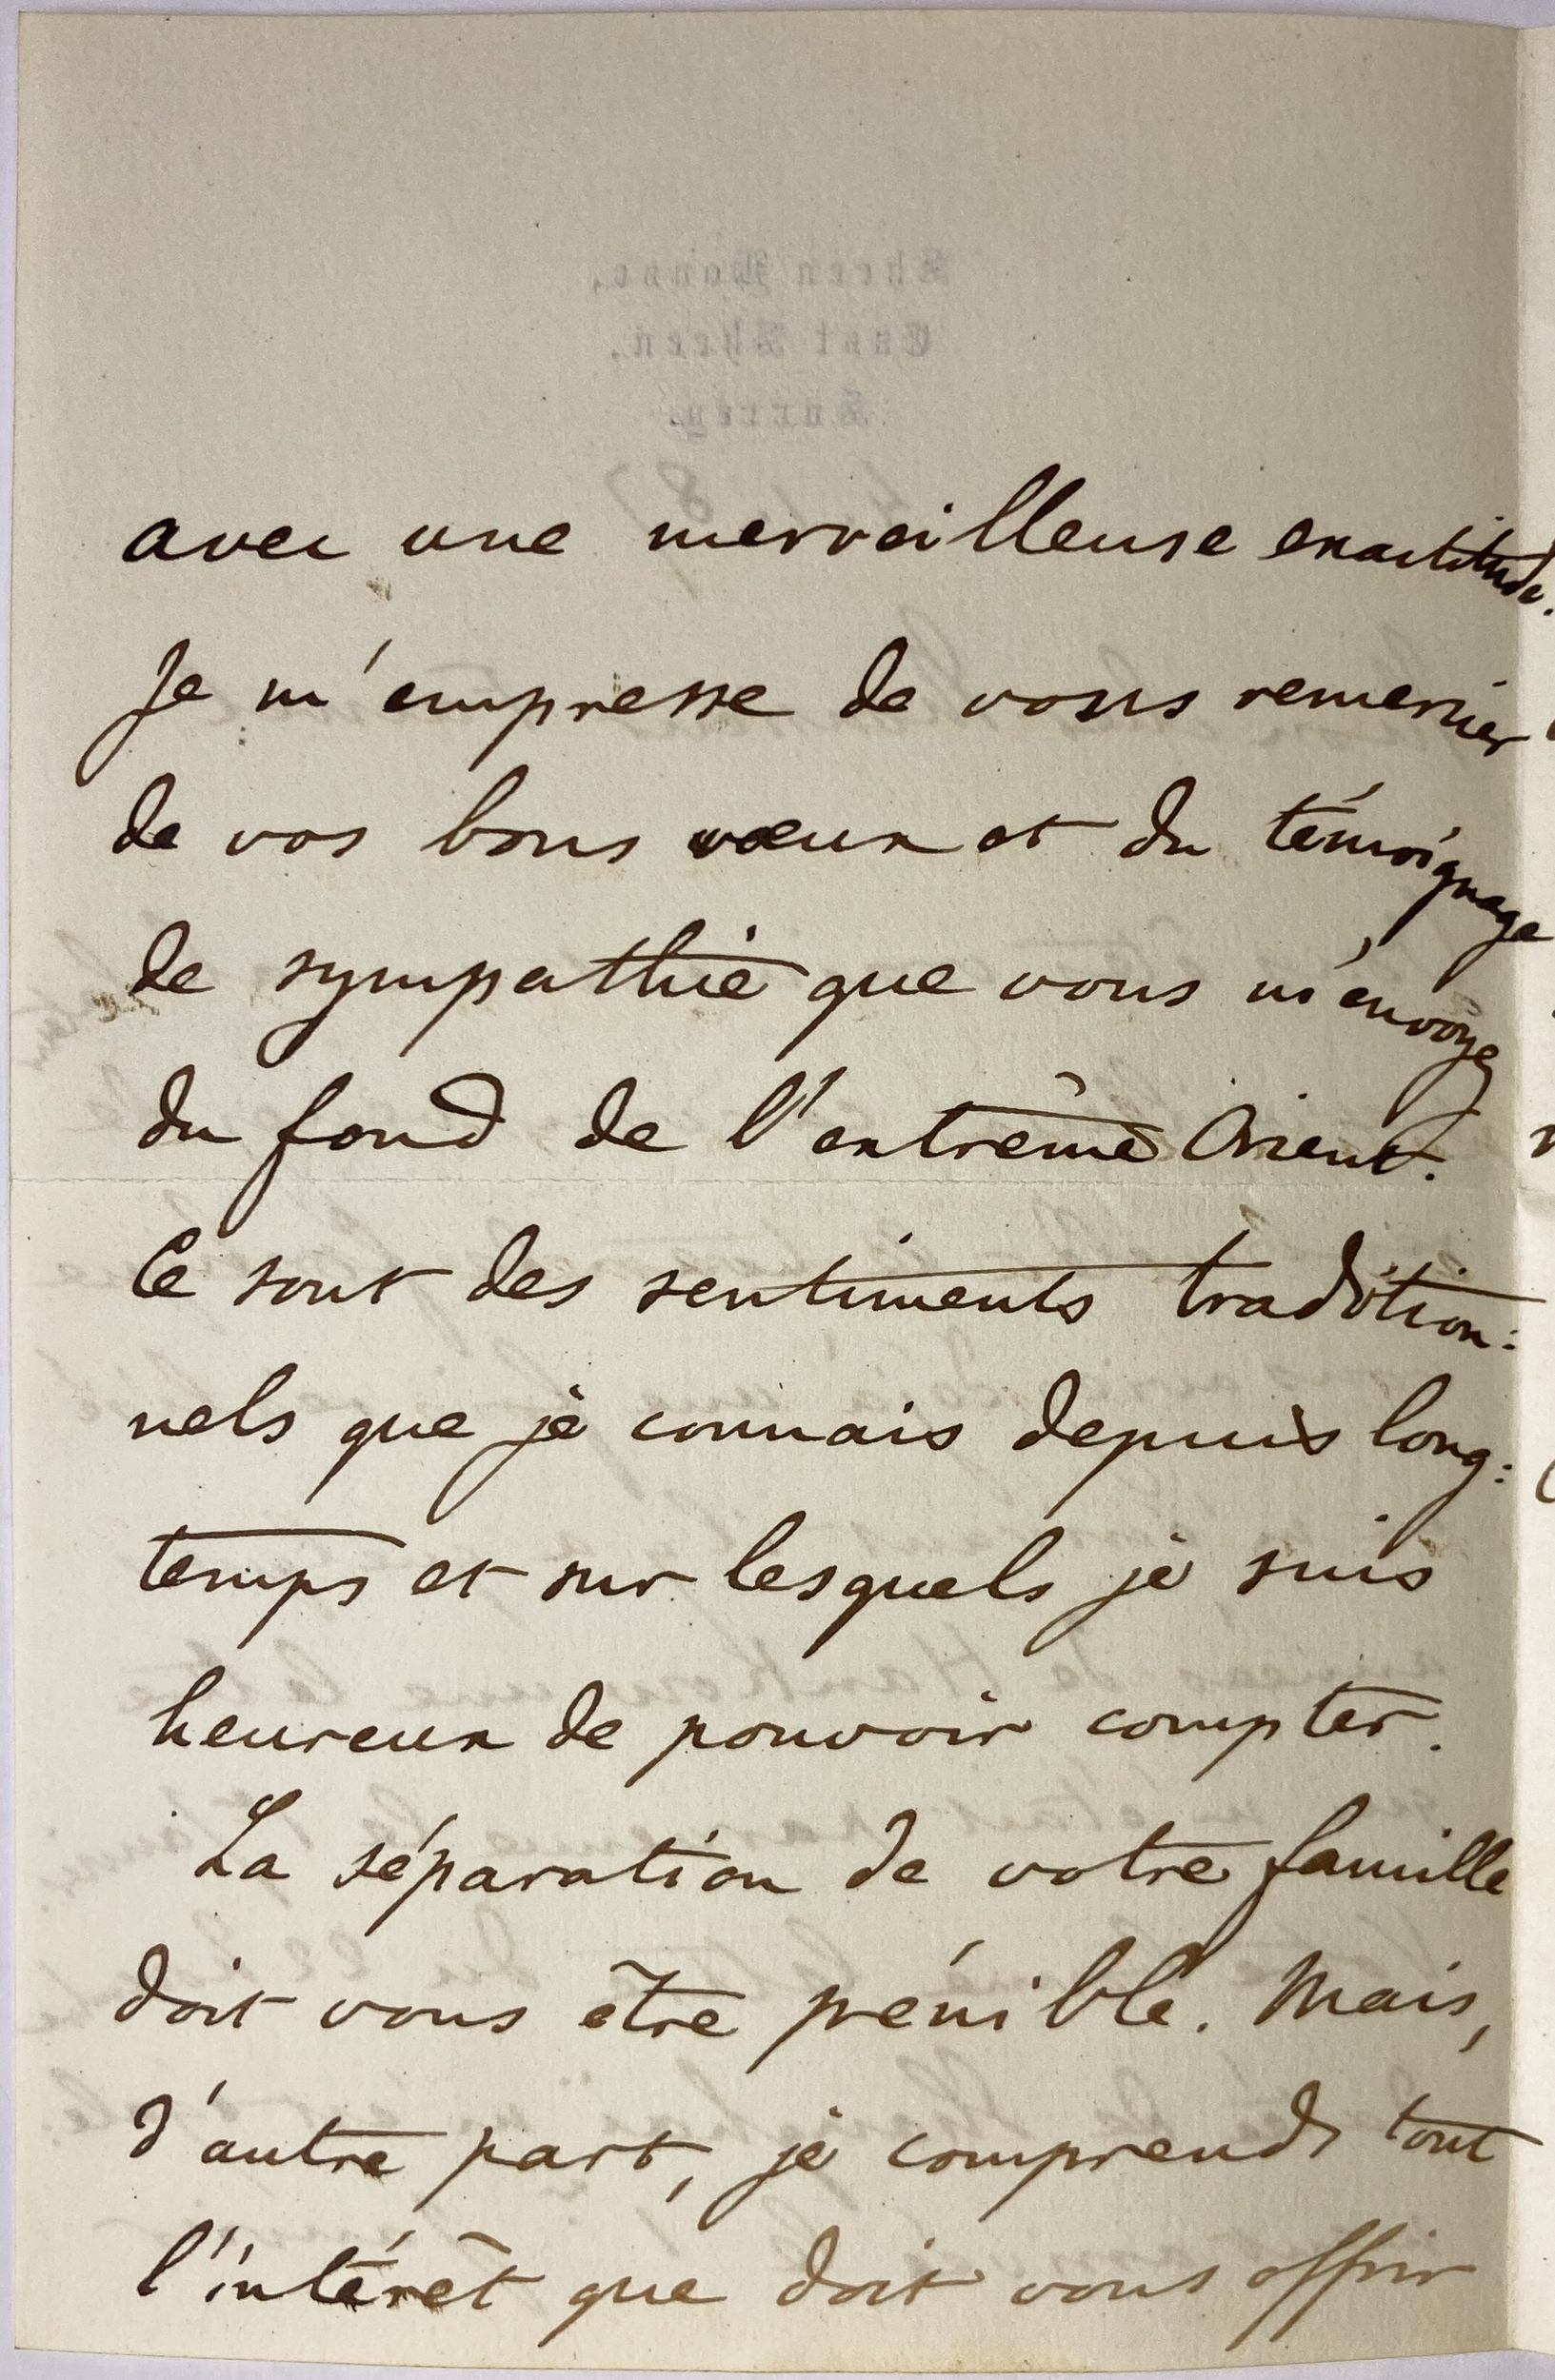 Sheen House,
East Sheen,
Surrey.
avec une merveilleuse exactitude.
Je m'empresse de vous remercier
de vos bons vœux et du témoignage
de sympathie que vous m'envoyez
du fond de l'extrême Orient.
Ce sont des sentiments tradition:
nels que je connais depuis long:
temps et sur lesquels je suis
heureux de pouvoir compter.
La séparation de votre famille
doit vous être pénible. Mais,
d'autre part, je comprends tout
l'intérêt que doit vous offrir